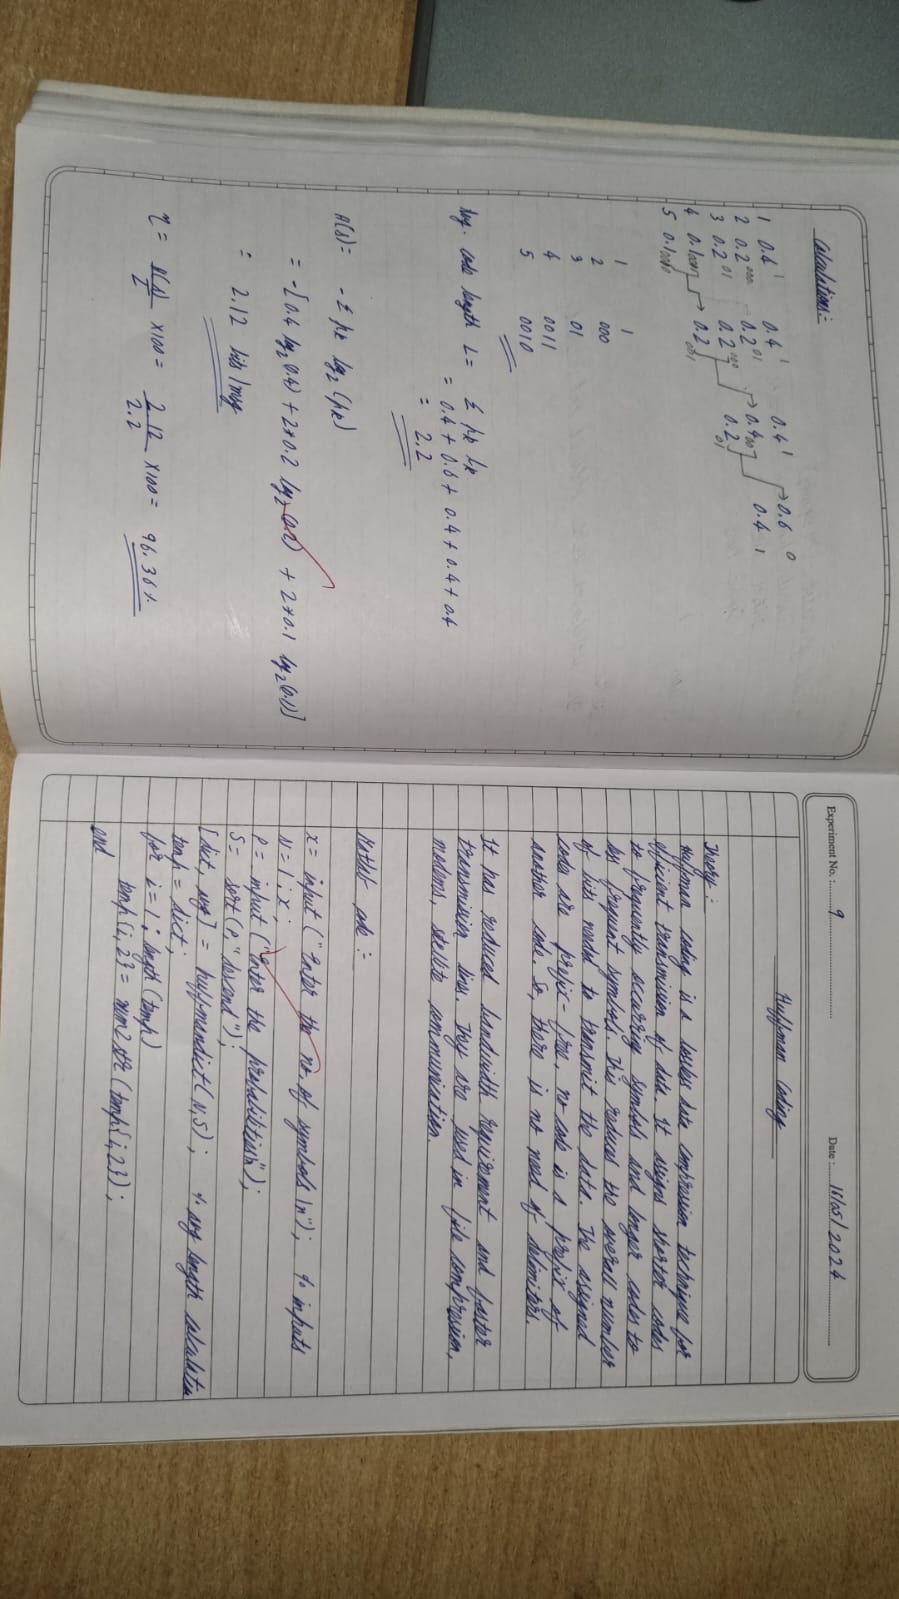 Calculations:-
1 0.4 1 0.4 1 0.4 1 0.6 0
2 0.2 000 0.2 01 0.4 00 0.4 1
3 0.2 01 0.2 000 0.2 01
4 0.1 0011 0.2 001
5 0.1 0010
1 1
2 000
3 01
4 0011
5 0010
Avg. code length L = Σ pk lk
= 0.4 + 0.6 + 0.4 + 0.4 + 0.4
= 2.2
H(s) = - Σ pk log2 (pk)
= -[0.4 log2 0.4) + 2*0.2 log2 (0.2) + 2*0.1 log2 (0.1)]
= 2.12 bits/msg
η = H(s)/L x100 = 2.12/2.2 x100 = 96.36%
Experiment No. : 9 Date : 16/05/2024
Huffman Coding
Theory:
Huffman coding is a lossless data compression technique for
efficient transmission of data. It assigns shorter codes
to frequently occurring symbols and longer codes to
less frequent symbols. This reduces the overall number
of bits needed to transmit the data. The assigned
codes are prefix-free, no code is a prefix of
another code. So, there is no need of delimiters.
It has reduced bandwidth requirement and faster
transmission lines. They are used in file compression,
modems, satellite communication.
Matlab code :-
x = input ("Enter the no. of symbols \n"); % inputs
N = 1:x;
P = input ("Enter the probabilities\n");
S = sort (P, "descend");
[dict, avg] = huffmandict (N,S); % avg length calculation
temp = dict;
for i = 1:length (temp)
temp{i,2} = num2str (temp{i,2});
end